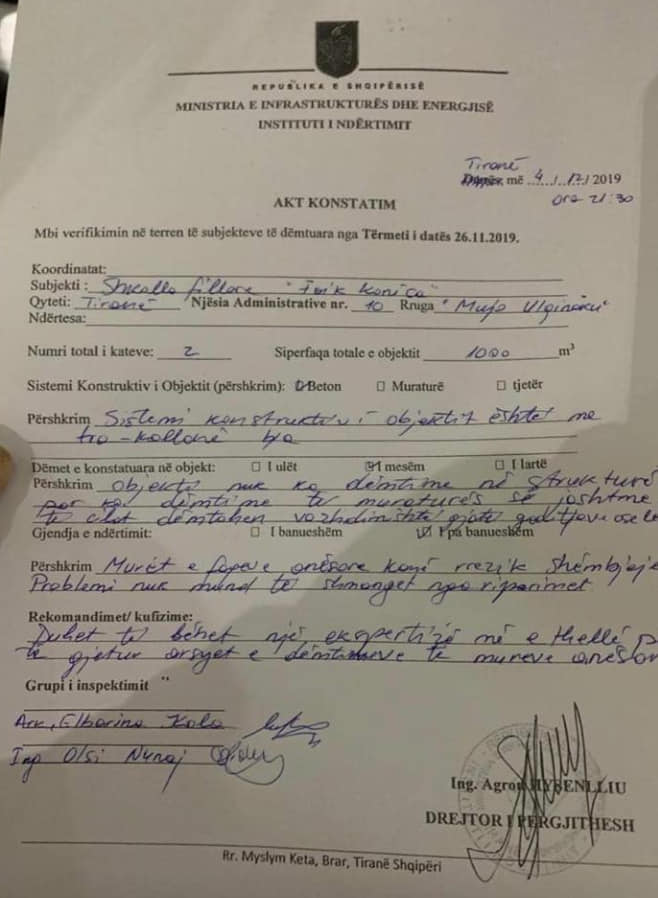 REPUBLIKA E SHQIPËRISË
MINISTRIA E INFRASTRUKTURËS DHE ENERGJISË
INSTITUTI I NDËRTIMIT
Tiranë
më 4 / 12 / 2019
Ora 21:30
AKT KONSTATIM
Mbi verifikimin në terren të subjekteve të dëmtuara nga Tërmeti i datës 26.11.2019.
Koordinatat:
Subjekti : Shkolla fillore "Faik Konica"
Qyteti: Tiranë Njësia Administrative nr. 10 Rruga "Mujo Ulqinaku"
Ndërtesa:
Numri total i kateve: 2 Siperfaqa totale e objektit 1000 m³
Sistemi Konstruktiv i Objektit (përshkrim): ☑ Beton ☐ Muraturë ☐ tjetër
Përshkrim Sistemi konstruktiv i objektit është me
tra-kollonë b/a
Dëmet e konstatuara në objekt: ☐ I ulët ☑ I mesëm ☐ I lartë
Përshkrim Objekti nuk ka dëmtime në strukturë
por ka dëmtime të muraturës së jashtme
të cilat dëmtohen vazhdimisht gjatë goditjeve ose
Gjendja e ndërtimit: ☐ I banueshëm ☑ I pa banueshëm
Përshkrim Muret e anësore kanë rrezik
Problemi nuk mund të shmanget nga riparimet
Rekomandimet/ kufizime:
Duhet të bëhet një ekspertizë më e thellë
të gjetur arsyet e dëmtimeve të mureve
Grupi i inspektimit "
Ark, Elbarina Kola
Ing Olsi
Ing. Agron MYSENLLIU
DREJTOR I PËRGJITHESH
Rr. Myslym Keta, Brar, Tiranë Shqipëri